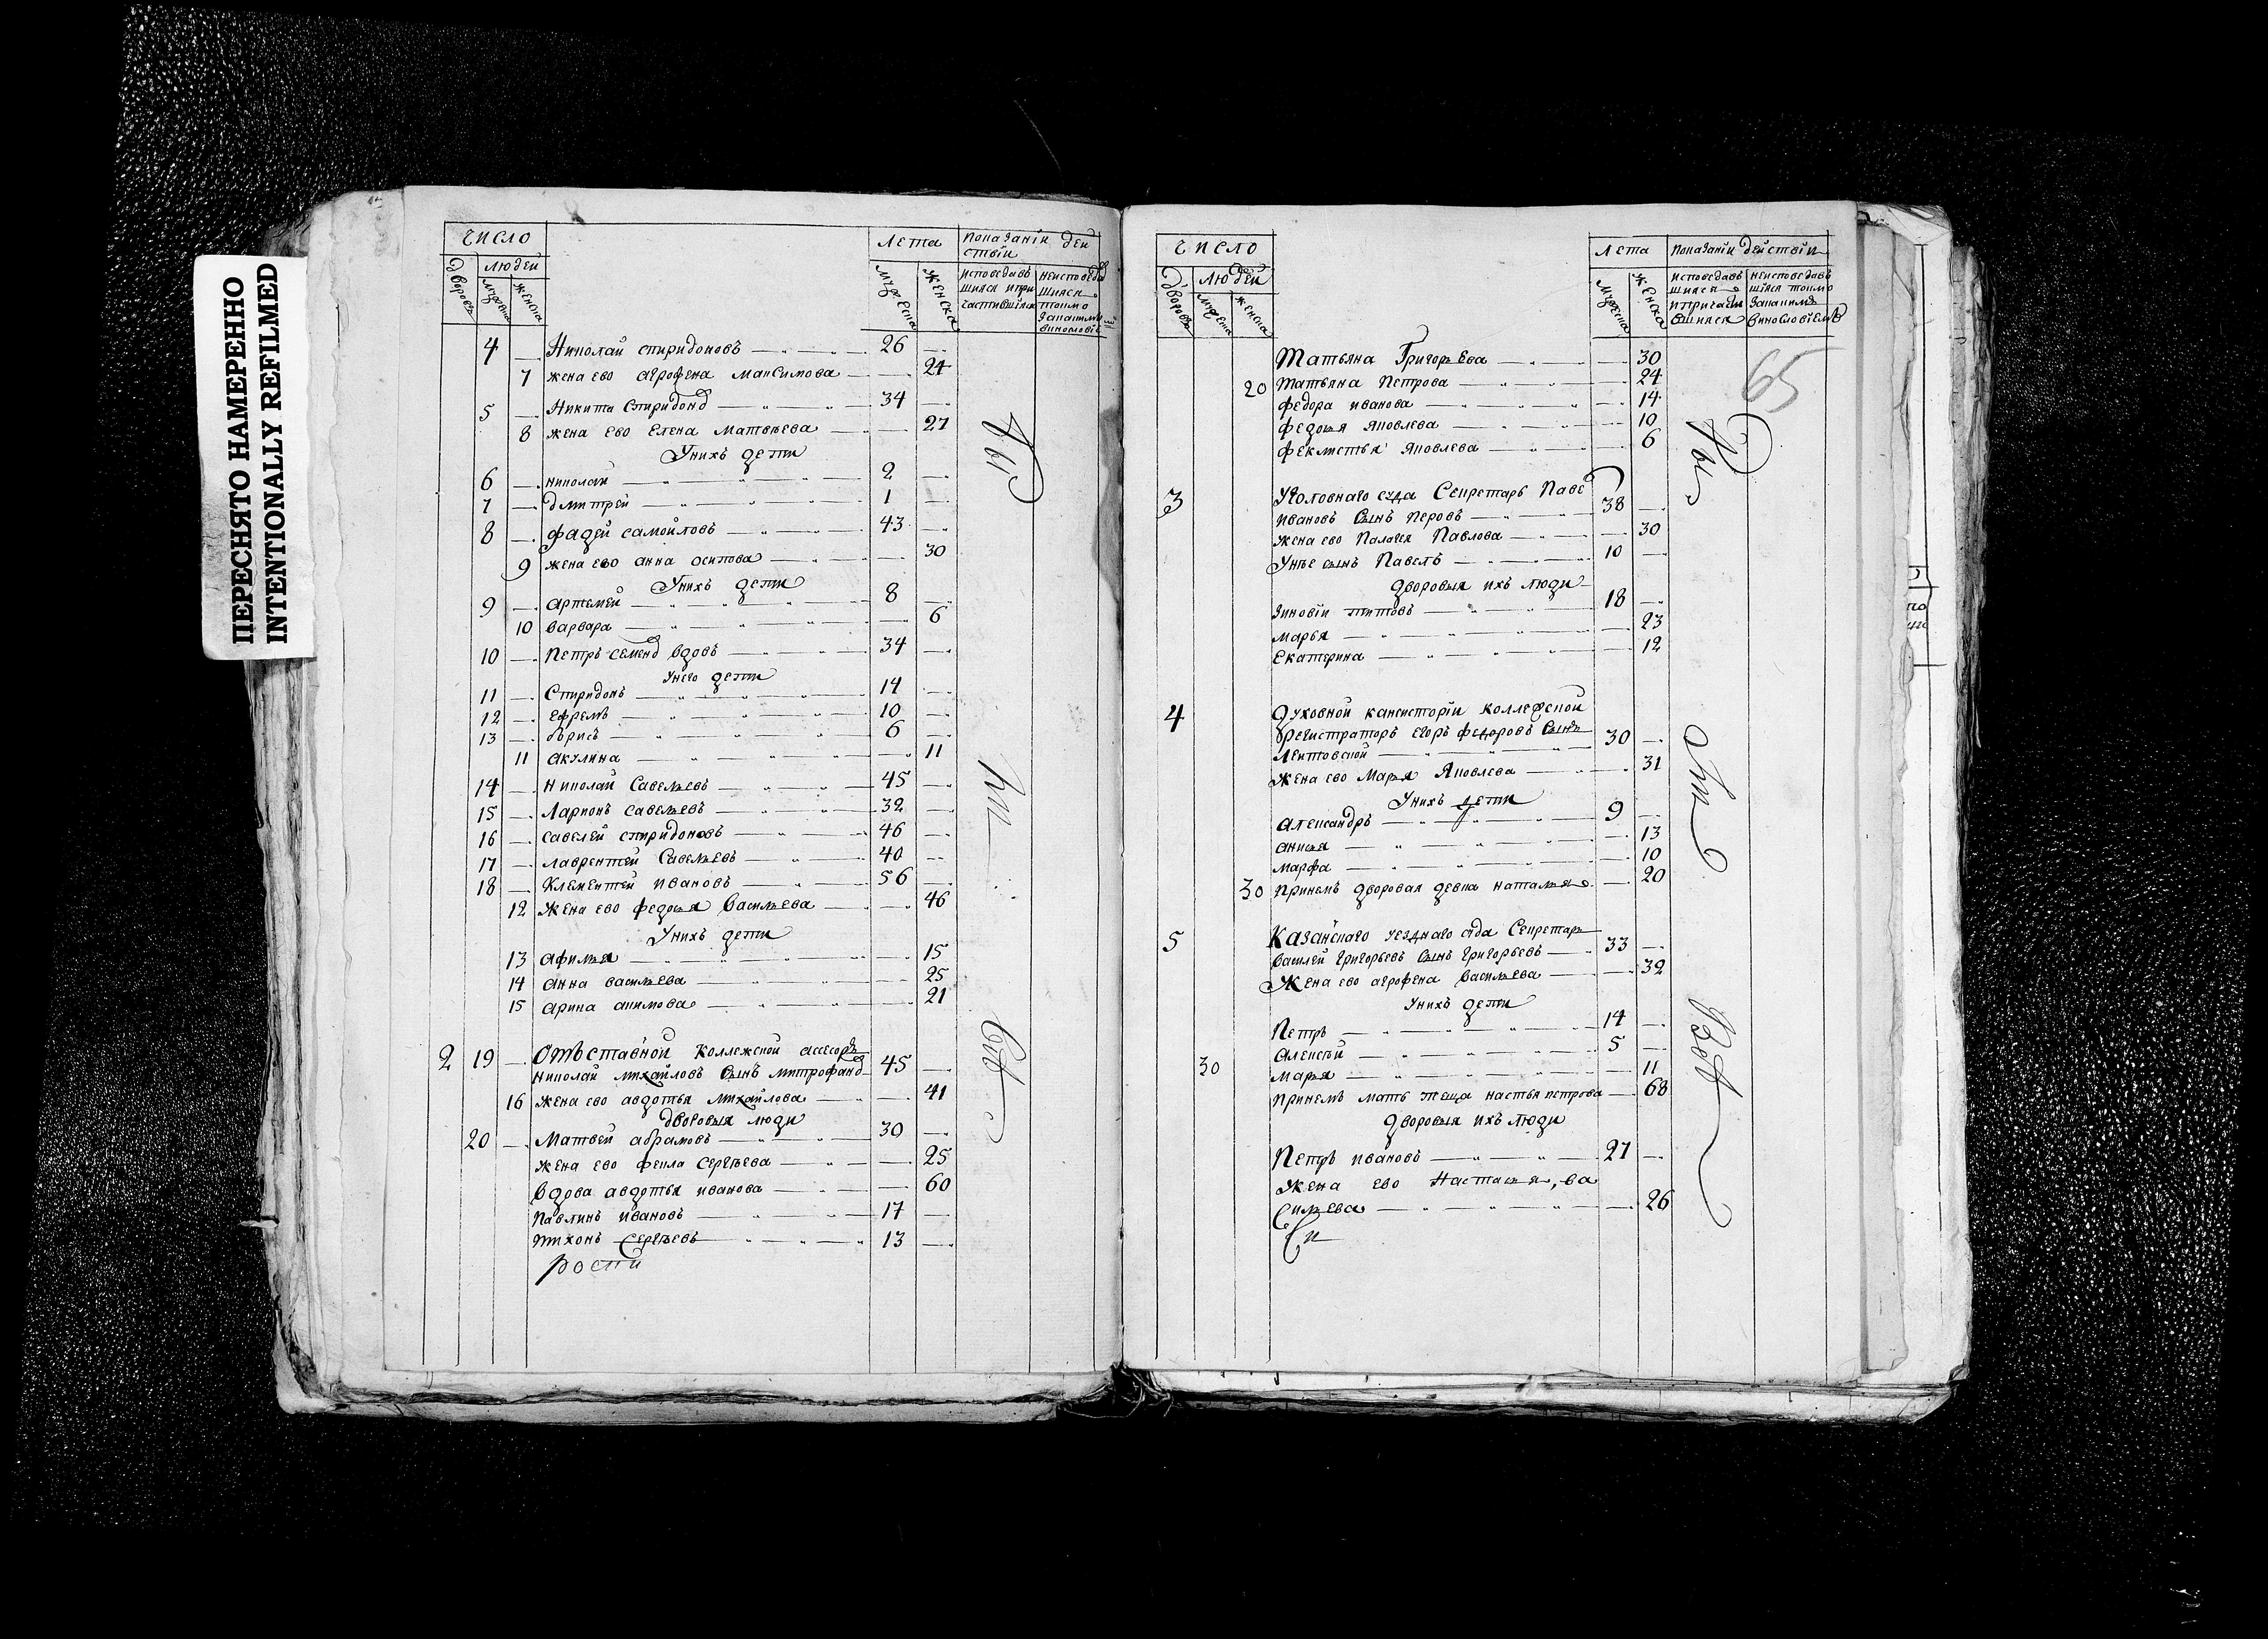 ПЕРЕСНЯТО НАМЕРЕННО
INTENTIONALLY REFILMED
число
Лета
показаніи деи
ствіи
дворовъ
людей
мужеска
женска
мужеска
женска
исповедавъ
шияся и при
частившіяся
неисповедав
шияся
токмо
4 Николай спиридоновъ 26
7 жена ево агрофена максимова 24
5 Никита Спиридонов 34
8 жена ево елена матвѣева 27
У нихъ дети
6 николай 2
7 дмитрей 1
8 фадей самойловъ 43
9 жена ево анна осипова 30
У нихъ дети
9 артемей 8
10 варвара 6
10 Петръ семенов вдовъ 34
У него дети
11 Спиридонъ 14
12 ефремъ 10
13 борисъ 6
11 акулина 11
14 Николай Савельевъ 45
15 Ларионъ савельевъ 32
16 савелей спиридоновъ 46
17 лаврентей Савельевъ 40
18 Клементей ивановъ 56
12 Жена ево федосья васильева 46
У нихъ дети
13 афимья 15
14 анна васильева 25
15 арина акимова 21
2 19 Отъставной коллежской ассесоръ
николай михайловъ сынъ митрофанов 45
16 жена ево авдотья михайлова 41
дворовыя люди
20 Матвей абрамовъ 30
жена ево фекла сергѣева 25
вдова авдотья иванова 60
павлинъ ивановъ 17
тихонъ сергѣевъ 13
число
Лета
показаніи действіи
дворовъ
людей
мужеска
женска
мужеска
женска
исповедавъ
шияся
и причасти
вшияся
неисповедавъ
шіяся токмо
65
Татьяна Григорьева 30
20 татьяна петрова 24
федора иванова 14
федосья яковлева 10
феклистья яковлева 6
3 Уголовнаго суда Секретарь Паве
ивановъ сынъ перовъ 38
жена ево Палагея Павлова 30
У нее сынъ Павелъ 10
дворовыя ихъ люди
Зиновіи титовъ 18
марья 23
екатерина 12
4 Духовной кансисторіи коллежской
регистраторъ егоръ федоровъ сынъ
30
жена ево Марья Яковлева 31
У нихъ дети
александръ 9
анисья 13
марфа 10
30 при немъ дворовая девка наталья 20
5 Казанскаго уезднаго суда Секретарь
василей григорьевъ сынъ григорьевъ 33
Жена ево агрофена васильева 32
У нихъ дети
Петръ 14
алексѣй 5
30 марья 11
при немъ мать теща настья петрова 68
дворовыя ихъ люди
Петръ ивановъ 27
жена ево Настасья, ва
сильева 26